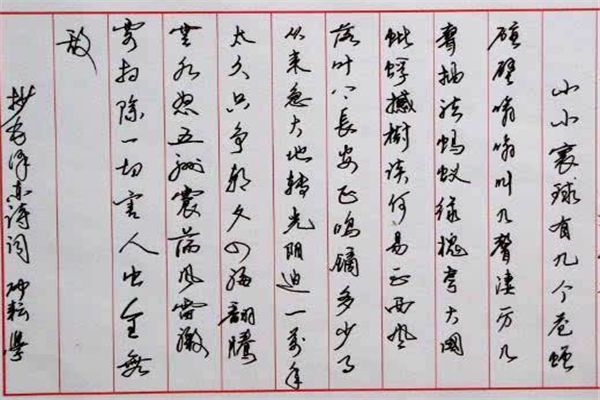 小小寰球有几个苍蝇
碰壁嗡嗡叫几聲凄厉几
聲抽泣蚂蚁缘槐夸大国
蚍蜉撼樹谈何易正西风
落叶下長安飞鸣镝多少事
从来急天地转光阴迫一萬年
太久只争朝夕四海翻腾
云水怒五洲震荡风雷激
要扫除一切害人虫全無
敌
抄毛泽东诗词